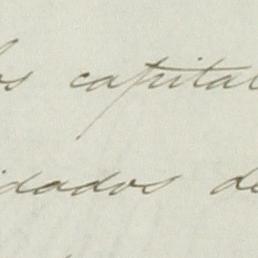 os capital
idados de